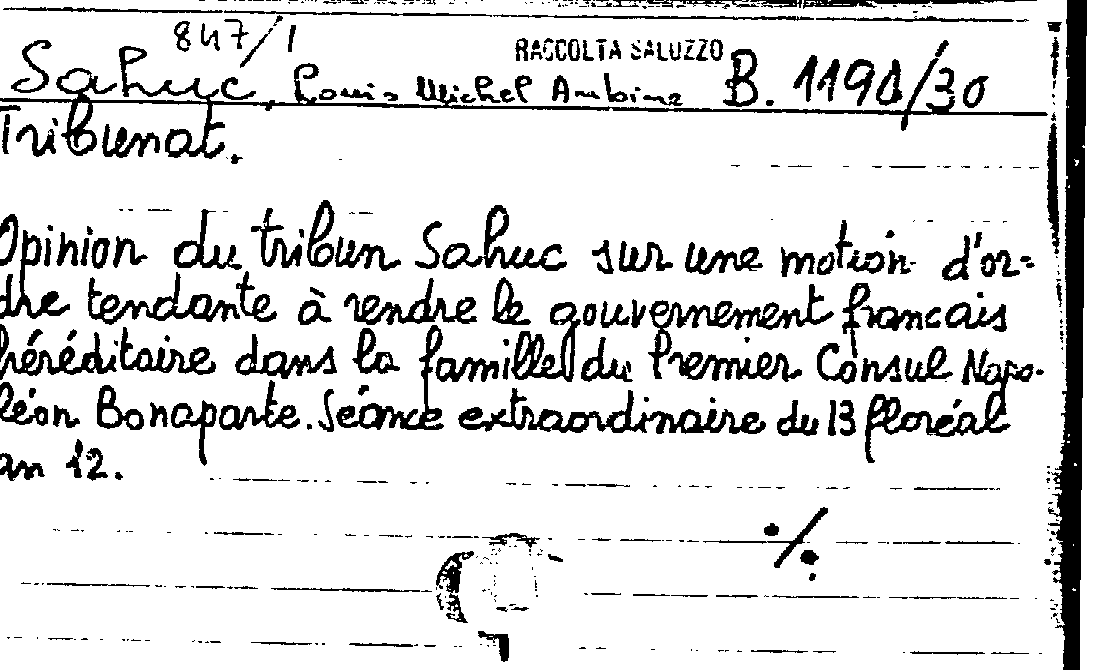 847/1
RACCOLTA SALUZZO
Sahuc, Louis Michel Antoine B. 1190/30
Tribunat.
Opinion du tribun Sahuc sur une motion d'or=
dre tendante à rendre le gouvernement francais
héréditaire dans la famille du Premier Consul Napo-
léon Bonaparte. Séance extraordinaire du 13 floréal
an 12.
./.